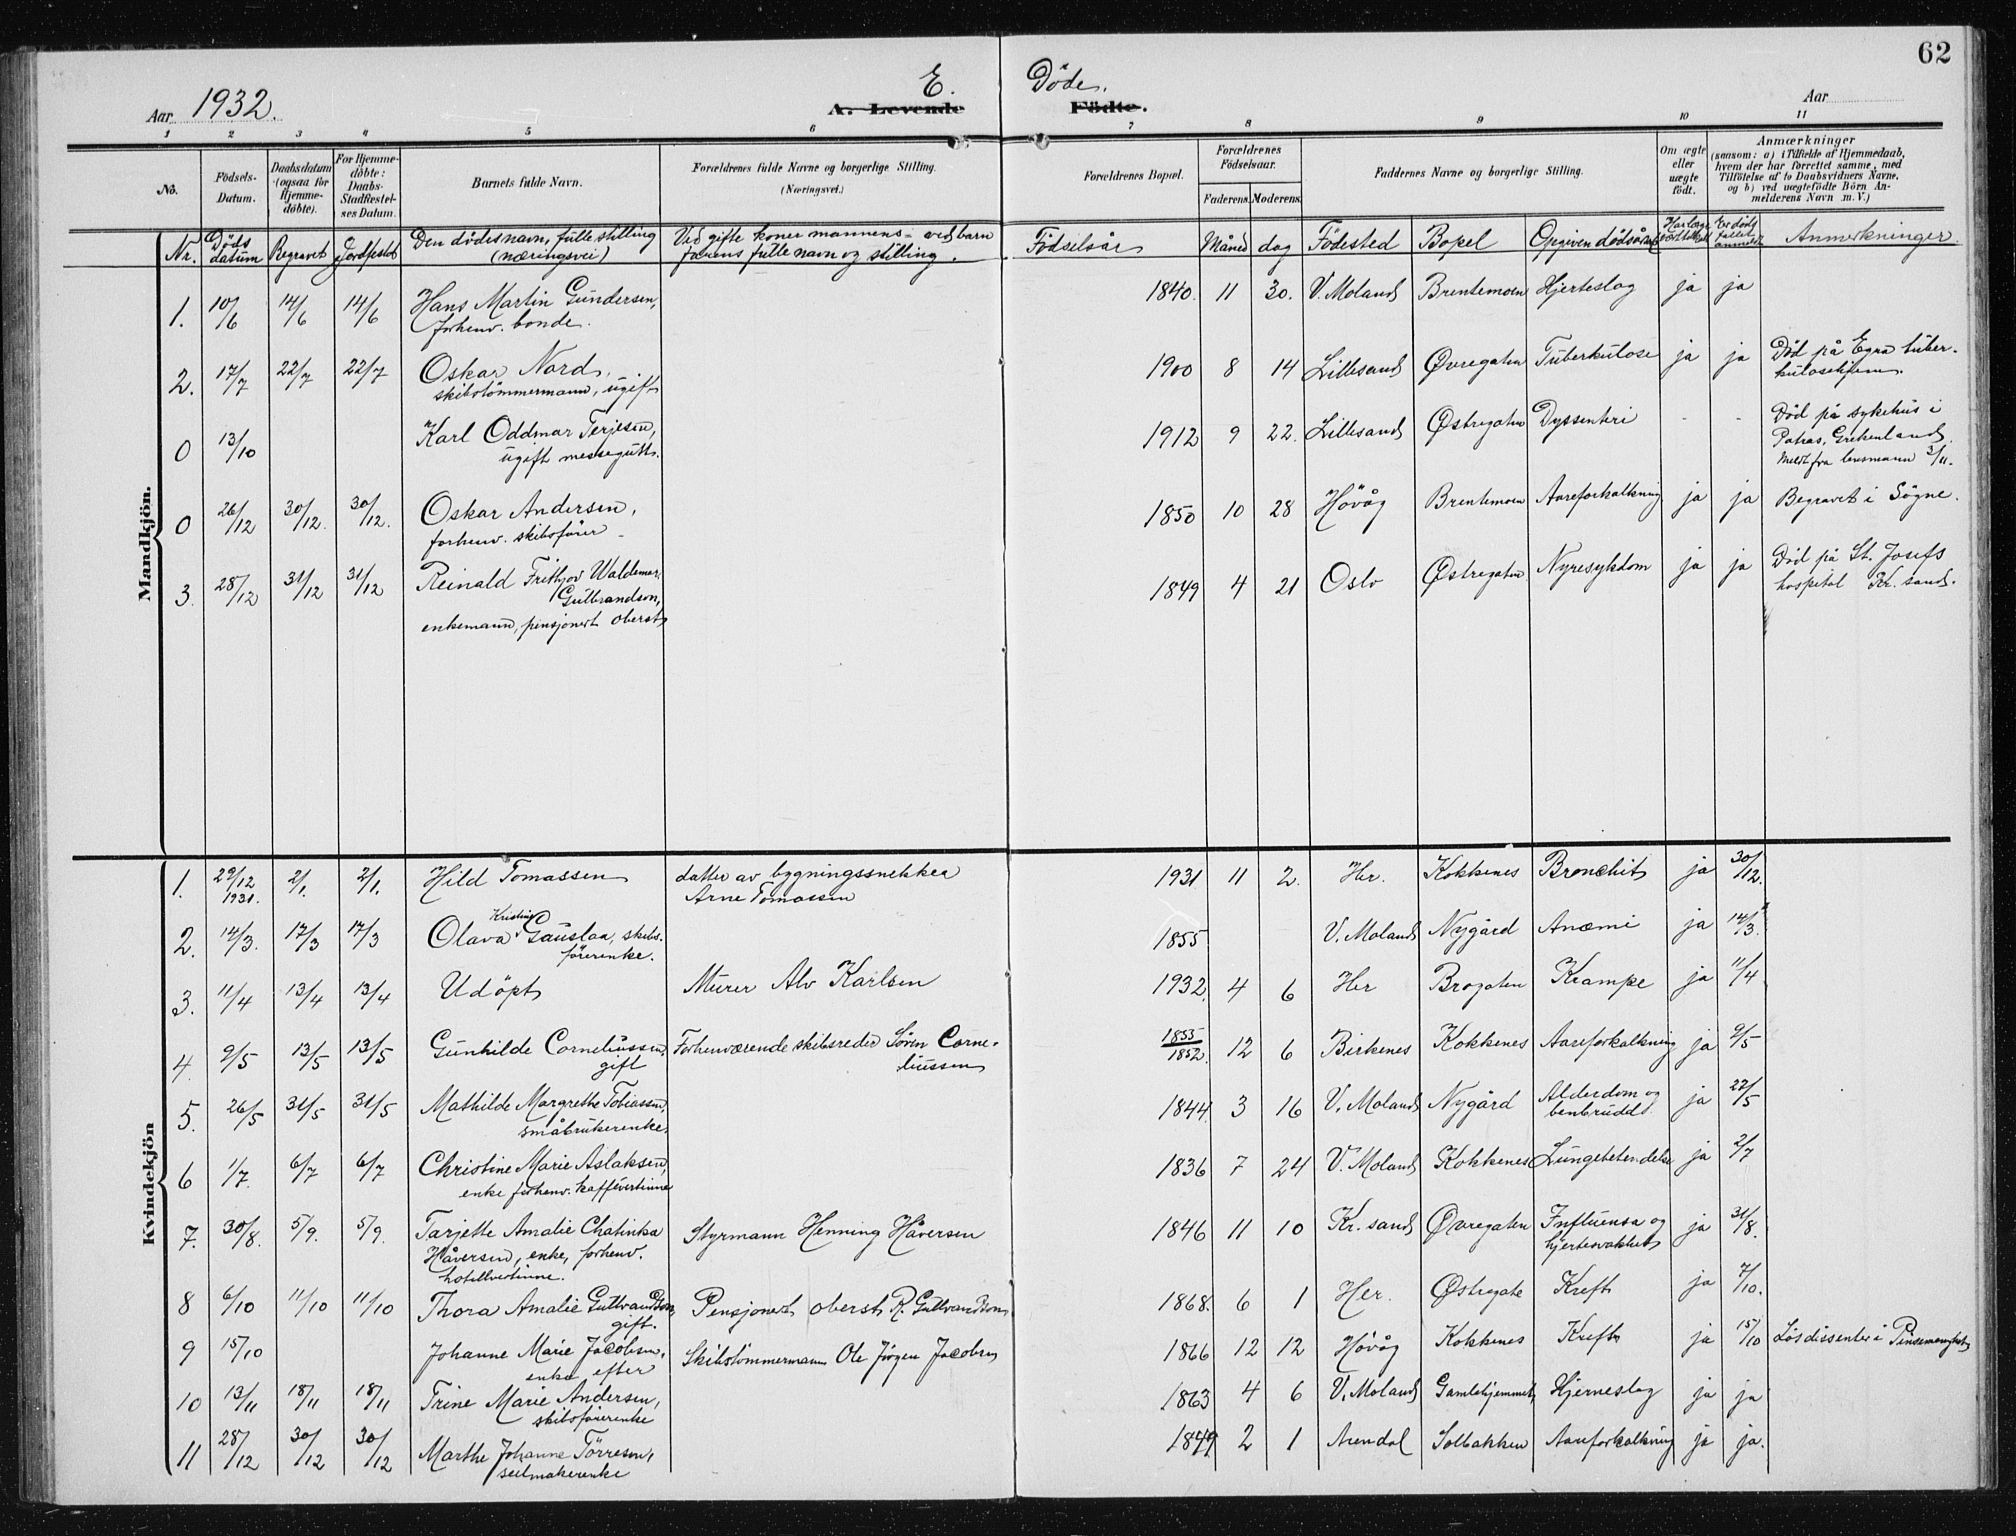 62
Aar 1932.
E. Döde.
A. Levende Födte.
Aar
1 2 3 4 5 6 7 8 9 10 11
No.
Födsels-Datum.
Daabsdatum (ogsaa for Hjemme-döbte).
For Hjemme-döbte: Daabs-Stadfæstel-ses Datum.
Barnets fulde Navn.
Forældrenes fulde Navne og borgerlige Stilling. (Næringsvei.)
Forældrenes Bopæl.
Forældrenes Födselsaar.
Faderens. Moderens.
Faddernes Navne og borgerlige Stilling.
Om ægte eller uægte födt.
Anmærkninger
(saasom: a) i Tilfælde af Hjemmedaab, hvem der har forrettet samme, med Tilföielse af to Daabsvidners Navne, og b) ved uægtefödte Börn Anmelderens Navn m. V.)
Nr. Döds datum Begravet Jordfestet Den dödes navn, fulle stilling (næringsvei) Ved gifte koner mannens - ved barn farens fulle navn og stilling. Födselsår Måned dag Födested Bopel Opgiven dödsårsak Er dödsfallet anmeldt Anmerkninger
Mandkjön.
1. 10/6 14/6 14/6 Hans Martin Gundersen, 1840. 11 30. V. Moland Brentemoen Hjerteslag ja ja
forhenv. bonde.
2. 17/7 22/7 22/7 Oskar Nord, 1900 8 14 Lillesand Øvregaten Tuberkulose ja ja Död på Egra tuber-
skibstömmermann, ugift kulosehjem.
0 13/10 Karl Oddmar Terjesen, 1912 9 22. Lillesand Østregaten Dyssenteri - - Död på sykehus i
ugift messegutt. Patras, Grekenland.
Meldt fra lensmann 3/11.
0 26/12 30/12. 30/12. Oskar Andersen, 1850 10 28 Hövåg Brentemoen Aareforkalkning ja ja Begravet i Sögne.
forhenv. skibsförer
3. 28/12 31/12 31/12 Reinald Frithjov Waldemar 1849 4 21 Oslo Østregaten Nyresykdom ja ja Död på St. Josefs
Gulbrandson, hospital Kr.sand.
enkemann, pensjonert oberst
Kvindekjön
1. 29/12 1931. 2/1. 2/1. Hild Tomassen datter av bygningssnekker 1931 11 2. Her. Kokkenes Bronchit ja 30/12.
Arne Tomassen
2. 14/3. 17/3 17/3 Olava Kristine Gauslaa, skibs- 1855 V. Moland Nygård Anæmi ja 14/3.
förerenke.
3. 11/4 13/4 13/4 Udöpt Murer Alv Karlsen 1932. 4 6 Her Brogaten Krampe ja 11/4
4. 9/5 13/5 13/5 Gunhilde Corneliussen, Forhenværende skibsreder Sören Corne- 1855/1852. 12 6 Birkenes Kokkenes Aareforkalkning ja 9/5
gift liussen
5. 26/5 31/5 31/5 Mathilde Margrethe Tobiassen, 1844. 3 16 V. Moland Nygård Alderdom og ja 27/5
småbrukerenke. benbrudd.
6 1/7. 6/7 6/7 Christine Marie Aslaksen, 1836 7 24 V. Moland Kokkenes Lungebetendelse ja 2/7
enke forhenv. kaffévertinne
7. 30/8. 5/9. 5/9. Tarjette Amalie Chatinka Styrmann Henning Håversen 1846 11 10 Kr. sand Øvregaten Influensa og ja 31/8.
Håversen, enke, forhenv. hjertesvakhet
hotellvertinne.
8 6/10 11/10 11/10 Thora Amalie Gulbrandson, Pensjonert oberst R. Gulbrandson 1868. 6 1 Her. Østregate Kreft ja 7/10.
gift.
9 15/10 Johanne Marie Jacobsen, Skibstömmermann Ole Jörgen Jacobsen 1866 12 12 Hövåg Kokkenes Kreft ja 15/10 Lös dissenter i
enke efter
10 13/11 18/11 18/11 Trine Marie Andersen, 1863 4 6 V. Moland Gamlehjemmet Hjerneslag ja ja
skibsförerenke
11 28/12 30/12 30/12 Marthe Johanne Törresen, 1849 2 1 Arendal Solbakken Aareforkalkning ja ja.
seilmakerenke